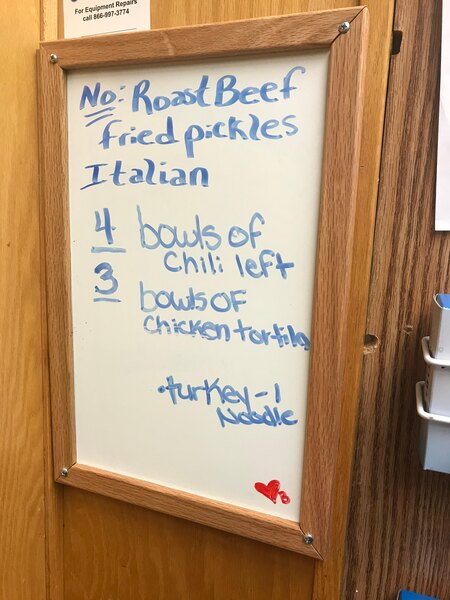 For Equipment Repairs
call 866-997-3774
No: Roast Beef
fried pickles
Italian
4 bowls of
Chili left
3 bowls of
Chicken tortilla
•turkey-1
Noodle